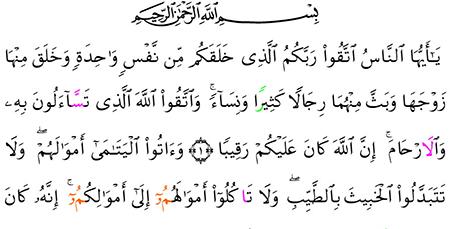 بِسْمِ ٱللَّهِ ٱلرَّحْمَٰنِ ٱلرَّحِيمِ
يَٰٓأَيُّهَا ٱلنَّاسُ ٱتَّقُواْ رَبَّكُمُ ٱلَّذِى خَلَقَكُم مِّن نَّفْسٍ وَٰحِدَةٍ وَخَلَقَ مِنْهَا
زَوْجَهَا وَبَثَّ مِنْهُمَا رِجَالًا كَثِيرًا وَنِسَآءً ۚ وَٱتَّقُواْ ٱللَّهَ ٱلَّذِى تَسَّآءَلُونَ بِهِۦ
وَٱلَارْحَامَ ۚ إِنَّ ٱللَّهَ كَانَ عَلَيْكُمْ رَقِيبًا ﴿١﴾ وَءَاتُواْ ٱلْيَتَٰمَىٰٓ أَمْوَٰلَهُمْ ۖ وَلَا
تَتَبَدَّلُواْ ٱلْخَبِيثَ بِٱلطَّيِّبِ ۖ وَلَا تَاكُلُوٓاْ أَمْوَٰلَهُمُۥٓ إِلَىٰٓ أَمْوَٰلِكُمُۥٓ ۚ إِنَّهُۥ كَانَ